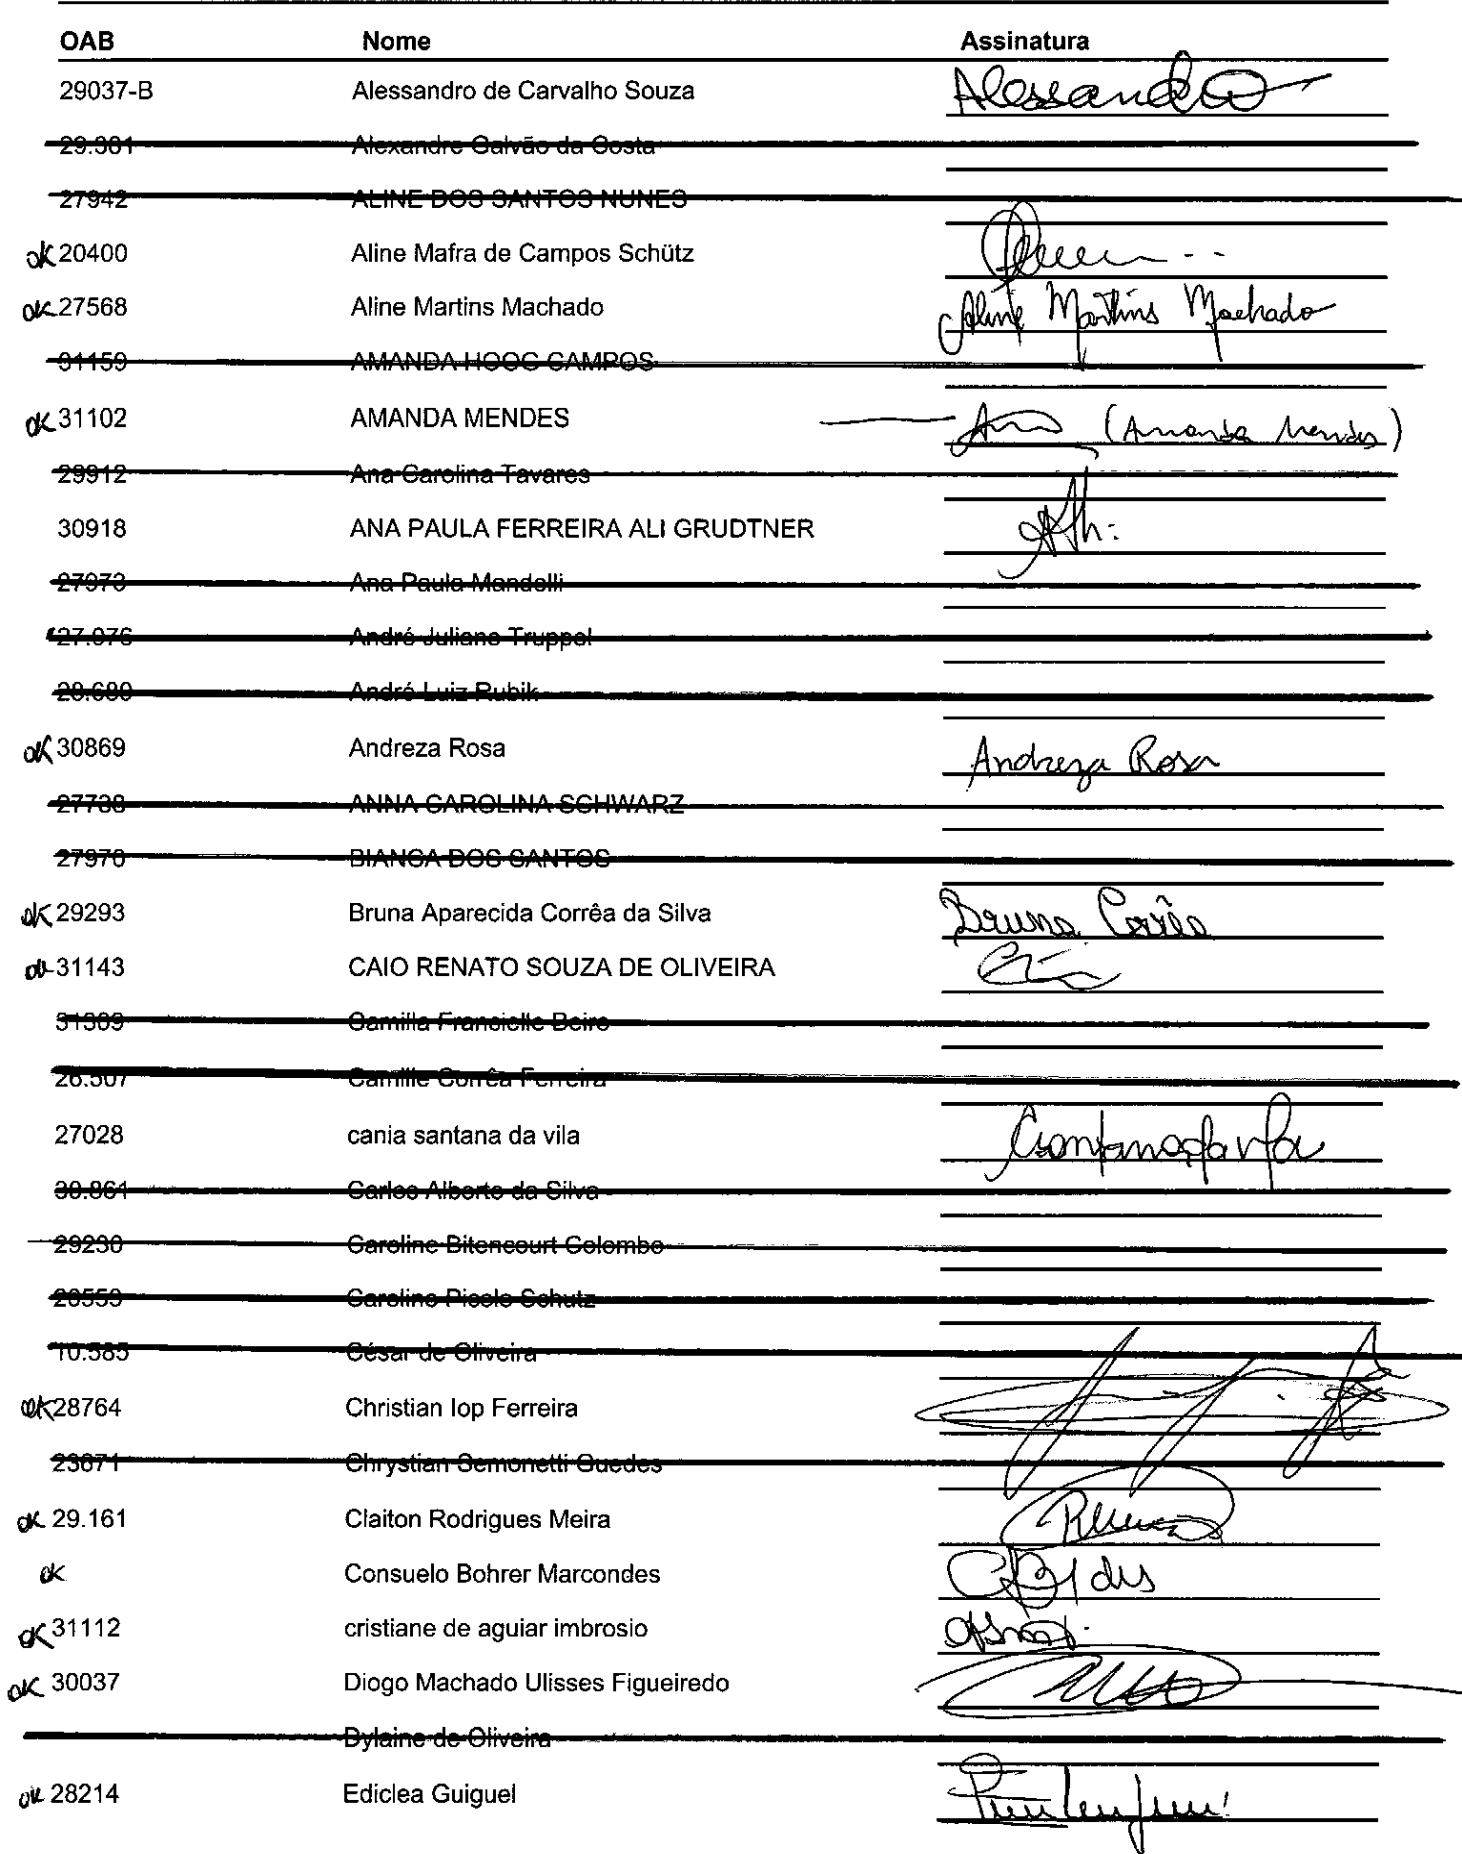 OAB Nome Assinatura
29037-B Alessandro de Carvalho Souza Alessandro
29.381 Alexandre Galvão da Costa
27942 ALINE DOS SANTOS NUNES
ok 20400 Aline Mafra de Campos Schütz
ok 27568 Aline Martins Machado Aline Martins Machado
31159 AMANDA HOOG CAMPOS
ok 31102 AMANDA MENDES (Amanda Mendes)
29912 Ana Carolina Tavares
30918 ANA PAULA FERREIRA ALI GRUDTNER
27973 Ana Paula Mandelli
27.076 André Juliano Truppel
28.680 André Luiz Rubik
ok 30869 Andreza Rosa Andreza Rosa
27738 ANNA CAROLINA SCHWARZ
27970 BIANCA DOS SANTOS
ok 29293 Bruna Aparecida Corrêa da Silva Bruna Corrêa
ok 31143 CAIO RENATO SOUZA DE OLIVEIRA
31309 Camilla Francielle Beiro
26.507 Camille Corrêa Ferreira
27028 cania santana da vila
30.861 Carlos Alberto da Silva
29230 Caroline Bitencourt Colombo
Caroline Schutz
10.585 César de Oliveira
ok 28764 Christian Iop Ferreira
23671 Chrystian Semonetti Guedes
ok 29.161 Claiton Rodrigues Meira
ok Consuelo Bohrer Marcondes
ok 31112 cristiane de aguiar imbrosio
ok 30037 Diogo Machado Ulisses Figueiredo
Dylaine de Oliveira
ok 28214 Ediclea Guiguel